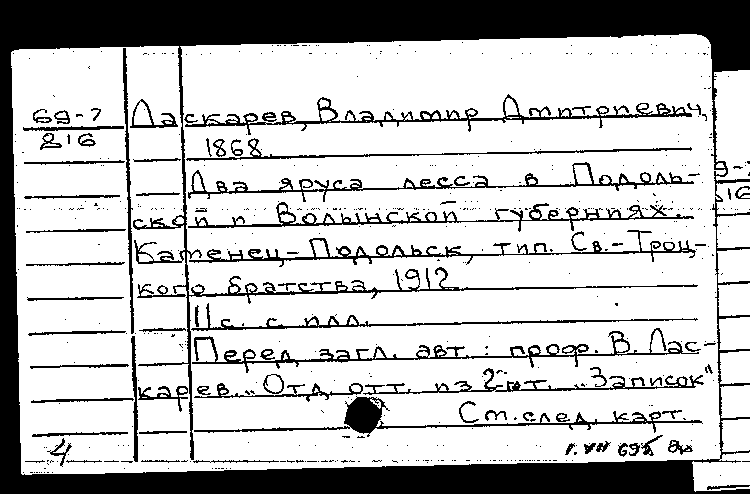 69-7
816
Ласкарев, Владимир Дмитриевич,
1868
Два яруса лесса в Подоль-
ской и Волынской губерниях.
Каменец-Подольск, тип. Св.-Троц-
кого братства, 1912
11 с. с илл.
Перед загл. авт.: проф. В. Лас-
карев. "Отд. отт. из 2-го т. "Записок"
См. след. карт.
4